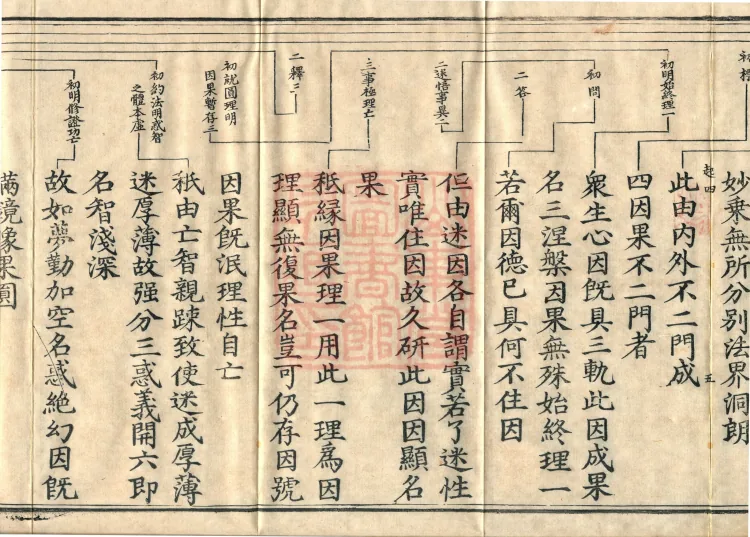 妙乗無所分別法界洞朗
起四
五
此由内外不二門成
四因果不二門者
初明始終理一
衆生心因旣具三軌此因成果
名三涅槃因果無殊始終理一
初問
若爾因德已具何不住因
二答
但由迷因各自謂實若了迷性
實唯住因故久研此因因顯名
果
二迷悟事異二
秪縁因果理一用此一理爲因
理顯無復果名豈可仍存因號
三事極理亡
因果旣泯理性自亡
二釋二
初就圓理明
因果暫存三
秪由亡智親踈致使迷成厚薄
迷厚薄故强分三惑義開六即
名智淺深
初約法明惑智
之體本虚
故如夢勤加空名惑絶幻因旣
初明修證功亡
滿境像果圓